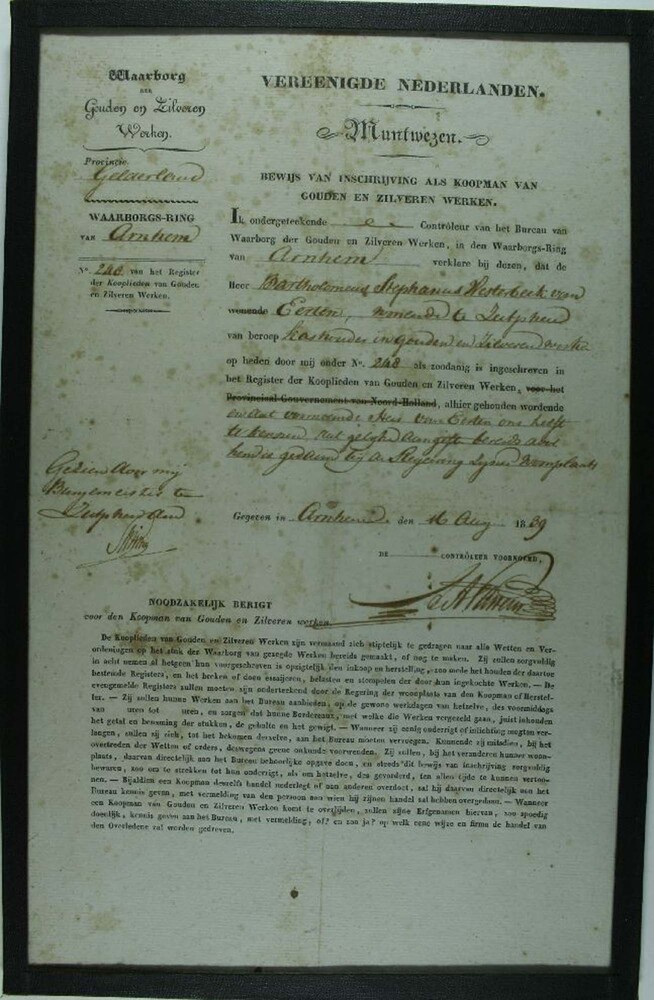 Waarborg
DER
Gouden en Zilveren
Werken.
Provincie
Gelderland
WAARBORGS-RING
VAN Arnhem
N°. 248 van het Register
der Kooplieden van Gouden
en Zilveren Werken.
VEREENIGDE NEDERLANDEN.
Muntwezen.
BEWIJS VAN INSCHRIJVING ALS KOOPMAN VAN
GOUDEN EN ZILVEREN WERKEN.
Ik ondergeteekende Contrôleur van het Bureau van
Waarborg der Gouden en Zilveren Werken, in den Waarborgs-Ring
van Arnhem verklare bij dezen, dat de
Heer Bartholomeus Stephanus Westerbeek van
wonende Eerten, wonende te Zutphen
van beroep Kashouder in gouden en Zilveren werken
op heden door mij onder N°. 248 als zoodanig is ingeschreven in
het Register der Kooplieden van Gouden en Zilveren Werken, voor het
Provinciaal Gouvernement van Noord-Holland, alhier gehouden wordende
en dat Heer van Eerten ons heeft
te kennen, dat aangifte bereids
gedaan bij de Regering zijner woonplaats
Gezien door mij
Burgemeester te
Zutphen den
Gegeven in Arnhem den 16 Aug 1839
DE CONTRÔLEUR VOORNOEMD,
NOODZAKELIJK BERIGT
voor den Koopman van Gouden en Zilveren werken.
De Kooplieden van Gouden en Zilveren Werken zijn vermaand zich stiptelijk te gedragen naar alle Wetten en Ver-
ordeningen op het stuk der Waarborg van gezegde Werken bereids gemaakt, of nog te maken. Zij zullen zorgvuldig
in acht nemen al hetgeen hun voorgeschreven is opzigtelijk den inkoop en herstelling, zoo mede het houden der daartoe
bestemde Registers, en het keuren of doen essaijeren, belasten en stempelen der door hun ingekochte Werken. — De
evengemelde Registers zullen moeten zijn onderteekend door de Regering der woonplaats van den Koopman of Herstel-
ler. — Zij zullen hunne Werken aan het Bureau aanbieden, op de gewone werkdagen van hetzelve, des voormiddags
van uren tot uren, en zorgen dat hunne Borderellen, met welke die Werken vergezeld gaan, juist inhouden
het getal en benaming der stukken, de gehalte en het gewigt. — Wanneer zij eenig onderrigt of inlichting mogten ver-
langen, zullen zij zich, tot het bekomen derzelve, aan het Bureau moeten vervoegen. Kunnende zij mitsdien, bij het
overtreden der Wetten of orders, deswegens geene onkunde voorwenden. Zij zullen, bij het veranderen hunner woon-
plaats, daarvan direktelijk aan het Bureau behoorlijke opgave doen, en steeds dit bewijs van inschrijving zorgvuldig
bewaren, zoo om te strekken tot hun onderrigt, als om hetzelve, des gevorderd, ten allen tijde te kunnen vertoo-
nen. — Bijaldien een Koopman deszelfs handel nederlegt of aan anderen overdoet, zal hij daarvan direktelijk aan het
Bureau kennis geven, met vermelding van den persoon aan wien hij zijnen handel zal hebben overgedaan. — Wanneer
een Koopman van Gouden en Zilveren Werken komt te overlijden, zullen zijne Erfgenamen hiervan, zoo spoedig
doenlijk, kennis geven aan het Bureau, met vermelding, of? en zoo ja? op welk eene wijze en firma de handel van
den Overledene zal worden gedreven.